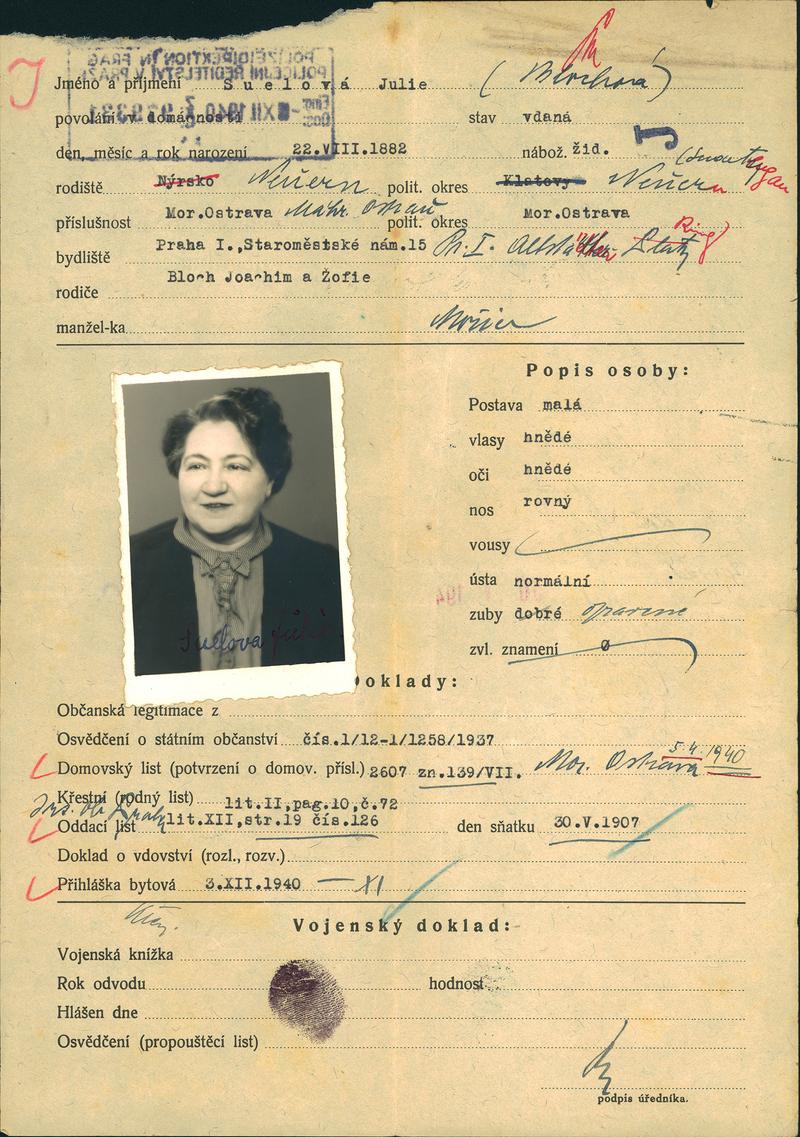 J
POLIZEIDIREKTION IN PRAG
POLICEJNÍ ŘEDITELSTVÍ V PRAZE
Jméno a příjmení Suelová Julie (Blochová)
povolání v domácnosti stav vdaná
J
den, měsíc a rok narození 22.VIII.1882 nábož. žid.
rodiště Nýrsko Neuern polit. okres Klatovy Neuern
příslušnost Mor.Ostrava Mähr. Ostrau polit. okres Mor.Ostrava
bydliště Praha I.,Staroměstské nám.15 Ring
rodiče Bloch Joachim a Žofie
manžel-ka
Popis osoby:
Postava malá
vlasy hnědé
oči hnědé
nos rovný
vousy
ústa normální
zuby dobré opravené
zvl. znamení Ø
Suelova Julie
Doklady:
Občanská legitimace z
Osvědčení o státním občanství čís.1/12-1/1258/1937
5.4.1940
Domovský list (potvrzení o domov. přísl.) 2607 zn.139/VII. Mor. Ostrava
Křestní (rodný list) lit.II,pag.10,č.72
Oddací list lit.XII,str.19 čís.126 den sňatku 30.V.1907
Doklad o vdovství (rozl., rozv.)
Přihláška bytová 3.XII.1940 — XI
Vojenský doklad:
Vojenská knížka
Rok odvodu hodnost
Hlášen dne
Osvědčení (propouštěcí list)
podpis úředníka.